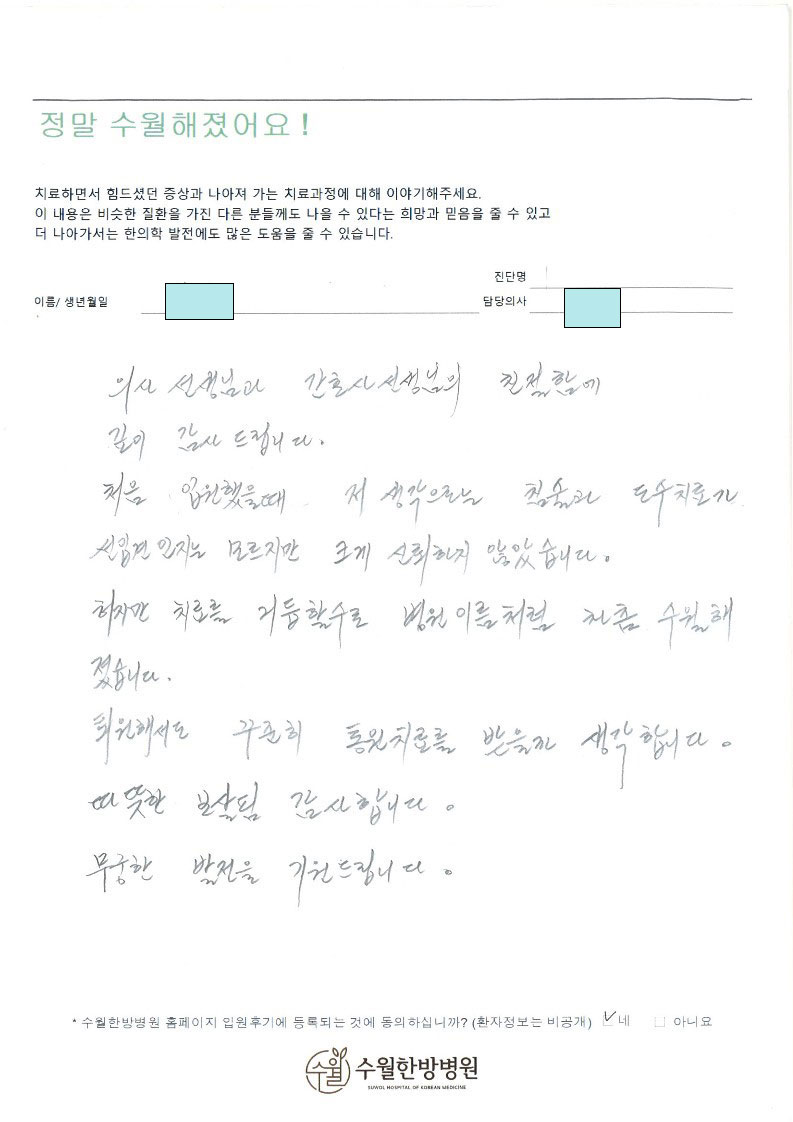 정말 수월해졌어요!
치료하면서 힘드셨던 증상과 나아져 가는 치료과정에 대해 이야기해주세요.
이 내용은 비슷한 질환을 가진 다른 분들께도 나을 수 있다는 희망과 믿음을 줄 수 있고
더 나아가서는 한의학 발전에도 많은 도움을 줄 수 있습니다.
진단명
이름/ 생년월일 담당의사
의사 선생님과 간호사선생님의 친절함에
깊이 감사드립니다.
처음 입원했을때 저 생각으로는 침술과 도수치료가
선입견 인지는 모르지만 크게 신뢰하지 않았습니다.
하지만 치료를 거듭할수록 병원이름처럼 차츰 수월해
졌습니다.
퇴원해서도 꾸준히 통원치료를 받을까 생각합니다.
따뜻한 보살핌 감사합니다.
무궁한 발전을 기원드립니다.
* 수월한방병원 홈페이지 입원후기에 등록되는 것에 동의하십니까? (환자정보는 비공개) 네 아니요
수월 수월한방병원
SUWOL HOSPITAL OF KOREAN MEDICINE